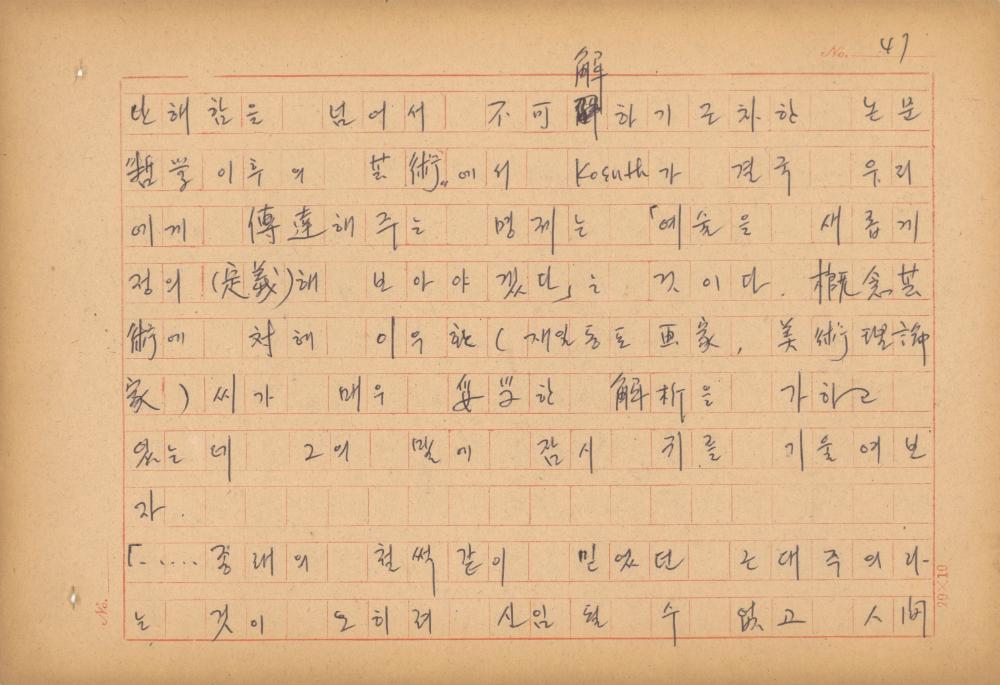 No. 47
解
난해함을 넘어서 不可解하기 근차한 논문
哲学이후의 芸術"에서 Kosuth가 결국 우리
에게 傳達해주는 명제는 「예술을 새롭게
정의(定義)해 보아야겠다」는 것이다. 概念芸
術에 対해 이우환(재일동포 画家, 美術理論
家)씨가 매우 妥当한 解析을 가하고
있는데 그의 말에 잠시 귀를 기울여보
자.
「.....종래의 철썩같이 믿었던 근대주의라
는 것이 도히려 신임될 수 없고 人間
No.
20×10